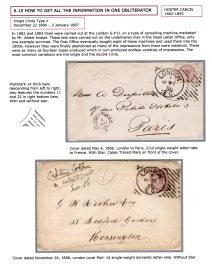 6.10 HOW TO GET ALL THE INFORMATION IN ONE OBLITERATOR
HOSTER CANCEL
1882-1893
Single Circle Type V
December 22 1884 – 3 January 1887
In 1882 and 1883 trials were carried out at the London G.P.O. on a type of cancelling machine marketed
by Mr. Albert Hoster. These test were carried out on the undelivered mail in the Dead Letter Office, only
one example survived. The Post Office eventually bought eight of these machines and used them into the
1890s. However they were finally abandoned as many of the impressions from them were indistinct. There
were as many as fourteen types produced which in turn produced endless varieties of impressions. The most
common variations are the single and the double circle.
Postmark 14 thick bars
descending from left to
right, also features the
numbers 11
and 22 in right bottom bars.
With and without star.
LONDON
Paris
Cover dated May 8, 1886. London to Paris. 2½d single-weight letter rate
to France. With Star. Calais Transit Mark on front of the cover.
LONDON
55 Gardens
Kensington
Cover dated November 26, 1886. London Local Mail. 1d single-weight domestic letter-rate. Without Star.